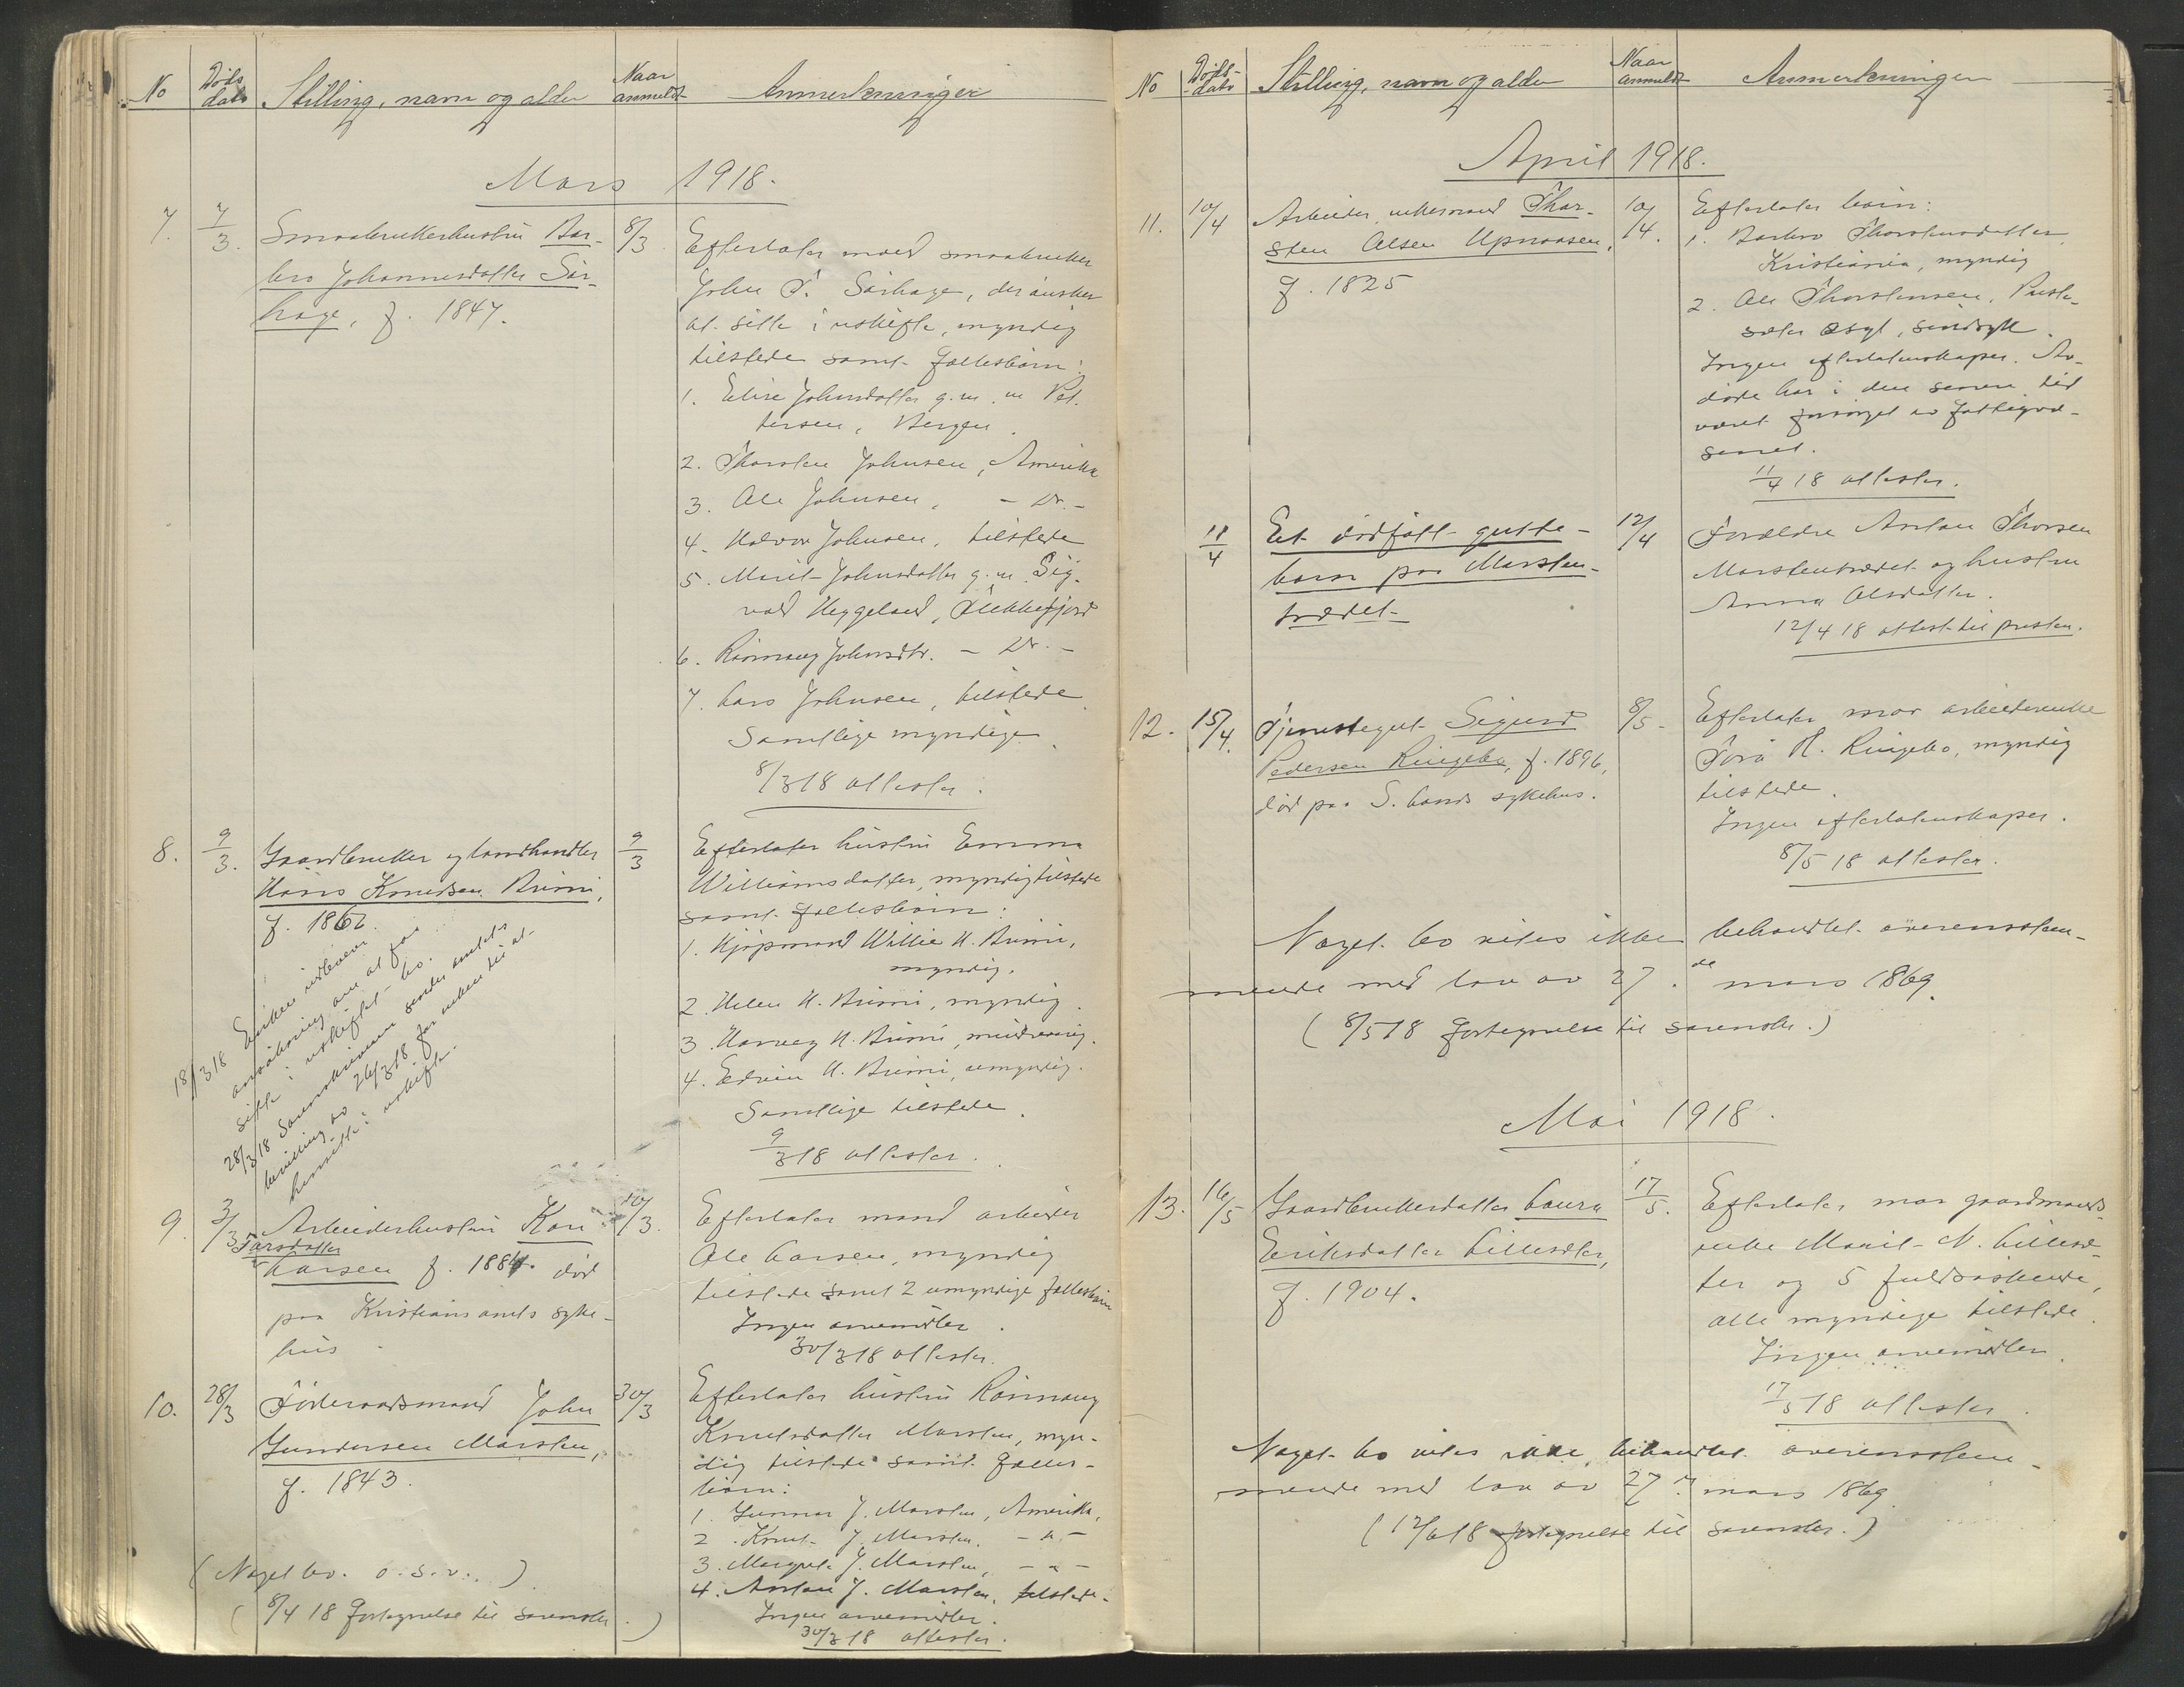 No Døds dato Stilling, navn og alder Naar anmeldt Anmerkninger
Mars 1918.
7. 7/3. Smaabrukerhustru Bar- 8/3
bro Johannesdatter Sør-
hage, f. 1847.
Efterlater mand smaabruker
John T. Sørhage, der ønsker
at sitte i uskifte, myndig
tilstede samt fællesbørn:
1. Elise Johnsdatter g. m. m Pet-
tersen, Bergen.
2. Thorsten Johnsen, Amerika
3. Ole Johnsen, - Do. -
4. Halvor Johnsen, tilstede
5. Marit Johnsdatter g. m. Sig-
vald Heggeland, Flekkefjord
6. Rønnaug Johnsdtr. - Do. -
7. Lars Johnsen, tilstede.
Samtlige myndige.
8/3 18 attester.
8. 9/3. Gaardbruker og landhandler 9/3
Hans Knudsen Brimi,
f. 1862.
Efterlater hustru Emma
Williamsdatter, myndig tilstede
samt fællesbørn:
1. Kjøpmand Willie H. Brimi,
myndig.
2. Helen H. Brimi, myndig.
3. Harvey H. Brimi, mindreaarig.
4. Edvin H. Brimi, umyndig.
Samtlige tilstede.
9/3 18 attester.
18/3 18 Enken indlever
ansøkning om at faa
sitte i uskiftet bo.
28/3 18 Sorenskriveren sender amtets
bevilling av 26/3 18 for enken til at
hensitte i uskifte.
9. 3/3 Arbeiderhustru Kari 30/3.
Tarsdatter
Larsen f. 1884. død
paa Kristiansands syke-
hus.
Efterlater mand arbeider
Ole Larsen, myndig
tilstede samt 2 umyndige fællesbørn
Ingen arvemidler.
30/3 18 attester.
10. 28/3 Føderaadsmand John 30/3
Gundersen Marsten,
f. 1843.
Efterlater hustru Rønnaug
Knutsdatter Marsten, myn-
dig tilstede samt fælles-
børn:
1. Gunnar J. Marsten, Amerika,
2. Knut J. Marsten, - " -
3. Margrete J. Marsten, - " -
4. Anton J. Marsten, tilstede.
Ingen arvemidler.
30/3 18 attester.
(Noget bo. o.s.v.)
(8/4 18 fortegnelse til sorenskr.)
No Døds-dato Stilling, navn og alder Naar anmeldt Anmerkninger
April 1918.
11. 10/4 Arbeider, enkemand Thor- 10/4.
sten Olsen Upnaasen,
f. 1825
Efterlater børn:
1. Barbro Thorstensdatter,
Kristiania, myndig
2. Ole Thorstensen, Preste-
sæter asyl, sindsyk.
Ingen efterlatenskaper. Av-
døde har i den senere tid
været forsørget av fattigvæ-
senet.
11/4 18 attester.
11/4 Et dødfødt gutte- 12/4
barn paa Marsten-
trædet
Forældre Anton Thorsen
Marstentrædet og hustru
Anna Olsdatter.
12/4 18 attest til presten.
12. 15/4. Tjenestegut Sigurd 8/5.
Pedersen Ringebo, f. 1896,
død paa S. Lands sykehus.
Efterlater mor arbeiderenke
Tora H. Ringebo, myndig
tilstede.
Ingen efterlatenskaper.
8/5 18 attester.
Noget bo vites ikke behandlet overensstem-
mende med lov av 27.de mars 1869.
(8/5 18 fortegnelse til sorenskr.)
Mai 1918.
13. 16/5 Gaardbrukerdatter Laura 17/5.
Eriksdatter Lillesæter,
f. 1904.
Efterlater mor gaardmands-
enke Marit N. Lillesæ-
ter og 5 fuldsøskende,
alle myndige tilstede.
Ingen arvemidler.
17/5 18 attester.
Noget bo vites ikke behandlet overensstem-
mende med lov av 27. mars 1869.
(12/6 18 fortegnelse til sorenskr.)